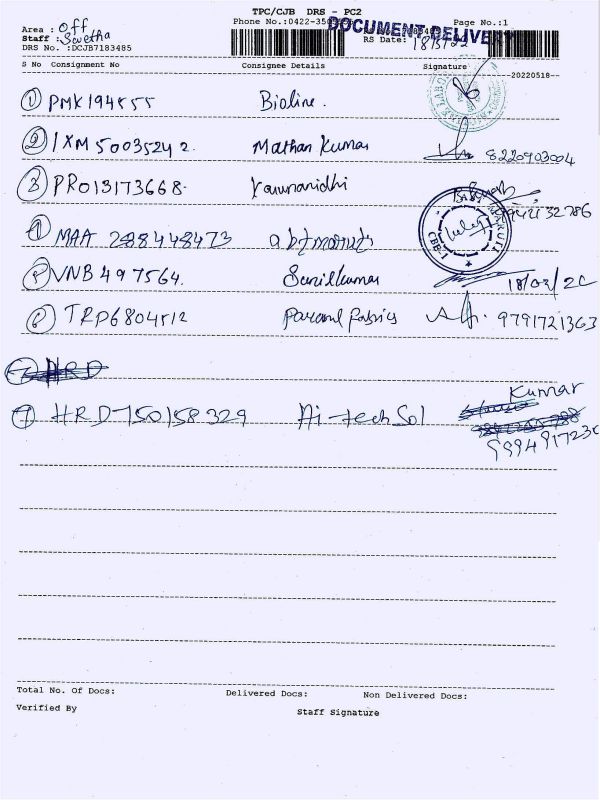 TPC/CJB DRS - PC2
Area : Off Phone No.:0422-350 Page No.:1
DOCUMENT DELIVERY
Staff : Swetha RS Date: 18/5/22
DRS No. :DCJB7183485
S No Consignment No Consignee Details Signature
20220518
1 PMK194855 Bioline.
2 IXM50035242. Mathan Kumar 8220903004
3 PRO13173668. Karunanidhi
4 MAA 288448473 abtmaruti
MARUTI
CBB-1
5 VNB497564. Sunilkumar
6 TRP6804512 9791721363
7 HRD
7 HRD750158329 Hi-tech Sol Kumar
Total No. Of Docs: Delivered Docs: Non Delivered Docs:
Verified By Staff Signature